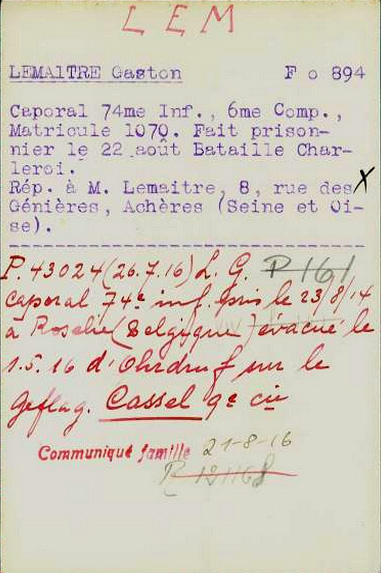 LEM
LEMAITRE Gaston F o 894
Caporal 74me Inf., 6me Comp.,
Matricule 1070. Fait prison-
nier le 22 août Bataille Char-
leroi.
Rép. à M. Lemaitre, 8, rue des X
Génières, Achères (Seine et Oi-
se).
P. 43024 (26.7.16) L. G. P 161
caporal 74e inf. pris le 23/8/14
à Roselie (Belgique) évacué le
1.5.16 d'Ohrdruf sur le
Geflag. Cassel 9e cie
Communiqué famille 21-8-16